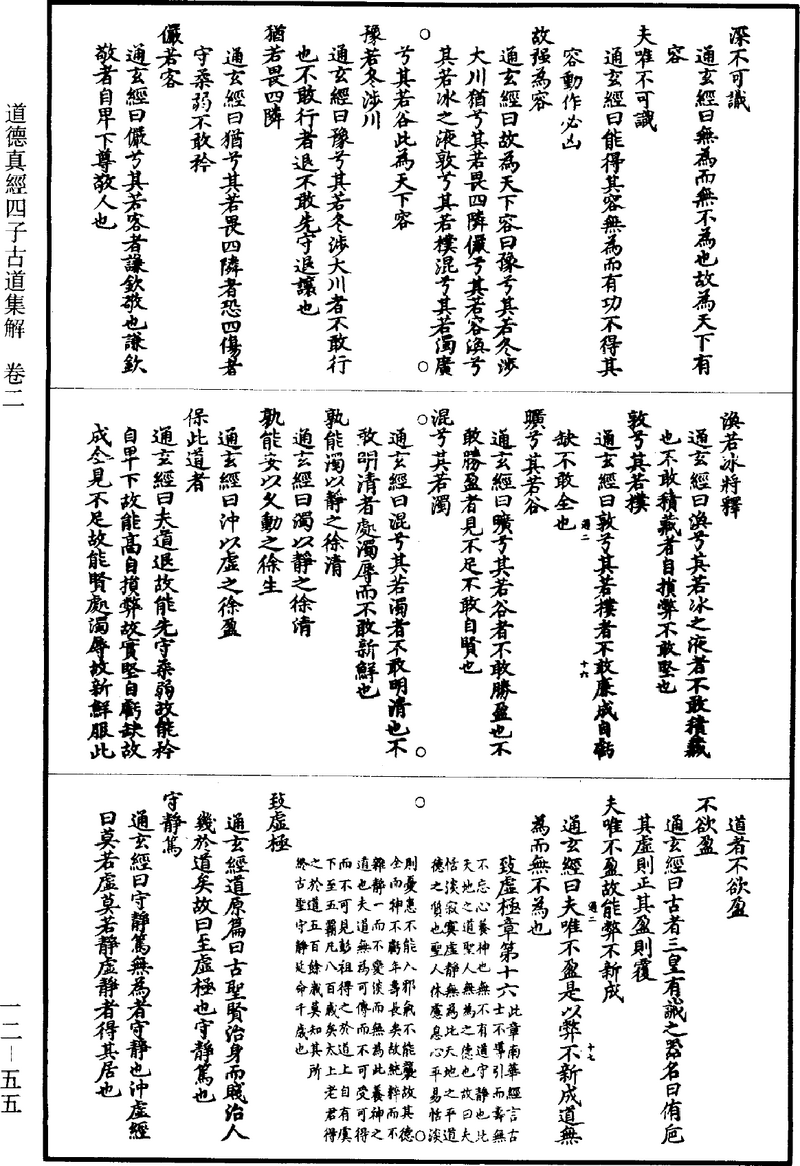 道德真經四子古道集解　卷二
深不可識
通玄經曰無為而無不為也故為天下有
容
夫唯不可識
通玄經曰能得其容無為而有功不得其
容動作必凶
故强為容
通玄經曰故為天下容曰豫兮其若冬涉
大川猶兮其若畏四隣儼兮其若容渙兮
其若冰之液敦兮其若樸混兮其若濁廣
兮其若谷此為天下容
豫若冬涉川
通玄經曰豫兮其若冬涉大川者不敢行
也不敢行者退不敢先守退讓也
猶若畏四隣
通玄經曰猶兮其若畏四隣者恐四傷者
守柔弱不敢矜
儼若客
通玄經曰儼兮其若客者謙欽敬也謙欽
敬者自卑下尊敬人也
渙若冰將釋
通玄經曰渙兮其若冰之液者不敢積藏
也不敢積藏者自損弊不敢堅也
敦兮其若樸
通玄經曰敦兮其若樸者不敢廉成自虧
缺不敢全也
曠兮其若谷
通玄經曰曠兮其若谷者不敢勝盈也不
敢勝盈者見不足不敢自賢也
混兮其若濁
通玄經曰混兮其若濁者不敢明清也不
敢明清者處濁辱而不敢新鮮也
孰能濁以靜之徐清
通玄經曰濁以靜之徐清
孰能安以久動之徐生
通玄經曰沖以虛之徐盈
保此道者
通玄經曰夫道退故能先守柔弱故能矜
自卑下故能高自損弊故實堅自虧缺故
成全見不足故能賢處濁辱故新鮮服此
道者不欲盈
不欲盈
通玄經曰古者三皇有誡之器名曰侑卮
其虛則正其盈則覆
夫唯不盈故能弊不新成
通玄經曰夫唯不盈是以弊不新成道無
為而無不為也
致虛極章第十六
此章南華經言古
士不導引而壽無
不忘心養神也無不有道守靜也比
天地之道聖人無為之德也故曰夫
恬淡寂寞虛靜無為此天地之平道
德之質也聖人休慮息心平易恬淡
則憂患不能入邪氣不能襲故其德
全而神不虧年壽長矣故純粹而不
雜靜一而不變淡而無為此養神之
道也夫道無為可傳而不可受可得
而不可見彭祖得之於道上自有虞
下至五霸凡八百歲矣太上老君得
之於道五百餘歲莫知其所
終古聖守靜延命千歲也
致虛極
通玄經道原篇曰古聖賢治身而賤治人
幾於道矣故曰至虛極也守靜篤也
守靜篤
通玄經曰守靜篤無為者守靜也沖虛經
曰莫若虛莫若靜虛靜者得其居也
一二—五五